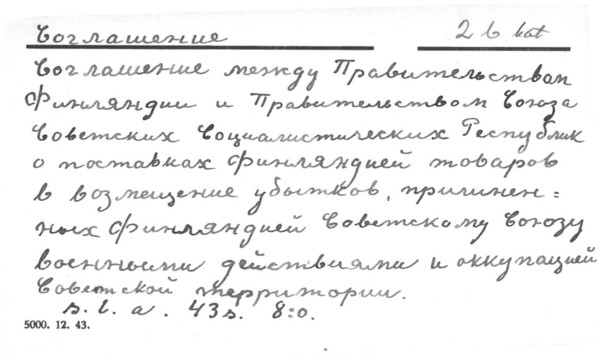 Соглашение
2 b bat
Соглашение между Правительством
Финляндии и Правительством Союза
Советских Социалистических Республик
о поставках Финляндией товаров
в возмещение убытков, причинен=
ных Финляндией Советскому Союзу
военными действиями и оккупацией
Советской территории.
s. l. a. 43 s. 8:o.
5000. 12. 43.